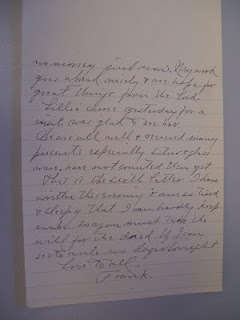 no money just now. My work
goes ahead nicely & am hope for
great things from the Look
Lillie came yesterday for a
visit was glad to see her
We are all well & received many
presents especially silver & glass
ware, have not counted them yet
This is the sixth letter I have
written this evening & am so tired
& sleepy that I can hardly keep
awake so you must take the
will for the deed. If I can
write no
Love to all
Frank